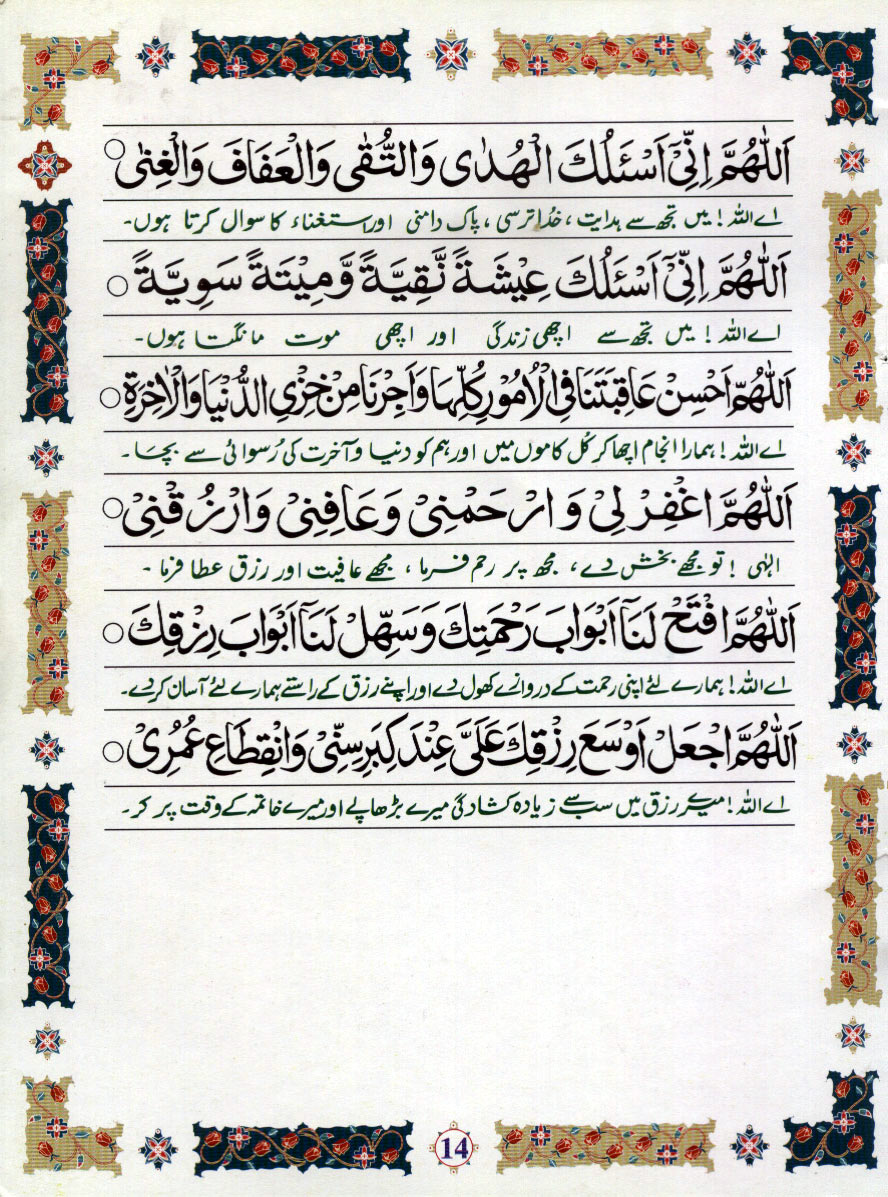 اَللّٰهُمَّ اِنِّیْٓ اَسْئَلُكَ الْهُدٰى وَالتُّقٰى وَالْعَفَافَ وَالْغِنٰى ○
اے اللہ! میں تجھ سے ہدایت، خدا ترسی، پاک دامنی اور استغناء کا سوال کرتا ہوں۔
اَللّٰهُمَّ اِنِّیْٓ اَسْئَلُكَ عِیْشَةً نَّقِیَّةً وَّمِیْتَةً سَوِیَّةً ○
اے اللہ! میں تجھ سے اچھی زندگی اور اچھی موت مانگتا ہوں۔
اَللّٰهُمَّ اَحْسِنْ عَاقِبَتَنَا فِی الْاُمُوْرِ كُلِّهَا وَاَجِرْنَا مِنْ خِزْیِ الدُّنْیَا وَالْاٰخِرَةِ ○
اے اللہ! ہمارا انجام اچھا کر کُل کاموں میں اور ہم کو دنیا و آخرت کی رُسوائی سے بچا۔
اَللّٰهُمَّ اغْفِرْ لِیْ وَ ارْحَمْنِیْ وَعَافِنِیْ وَارْزُقْنِیْ ○
الٰہی! تو مجھے بخش دے، مجھ پر رحم فرما، مجھے عافیت اور رزق عطا فرما۔
اَللّٰهُمَّ افْتَحْ لَنَآ اَبْوَابَ رَحْمَتِكَ وَسَهِّلْ لَنَآ اَبْوَابَ رِزْقِكَ ○
اے اللہ! ہمارے لئے اپنی رحمت کے دروازے کھول دے اور اپنے رزق کے راستے ہمارے لئے آسان کر دے۔
اَللّٰهُمَّ اجْعَلْ اَوْسَعَ رِزْقِكَ عَلَیَّ عِنْدَ كِبَرِ سِنِّیْ وَانْقِطَاعِ عُمُرِیْ ○
اے اللہ! میرے رزق میں سب سے زیادہ کشادگی میرے بڑھاپے اور میرے خاتمہ کے وقت پر کر۔
14